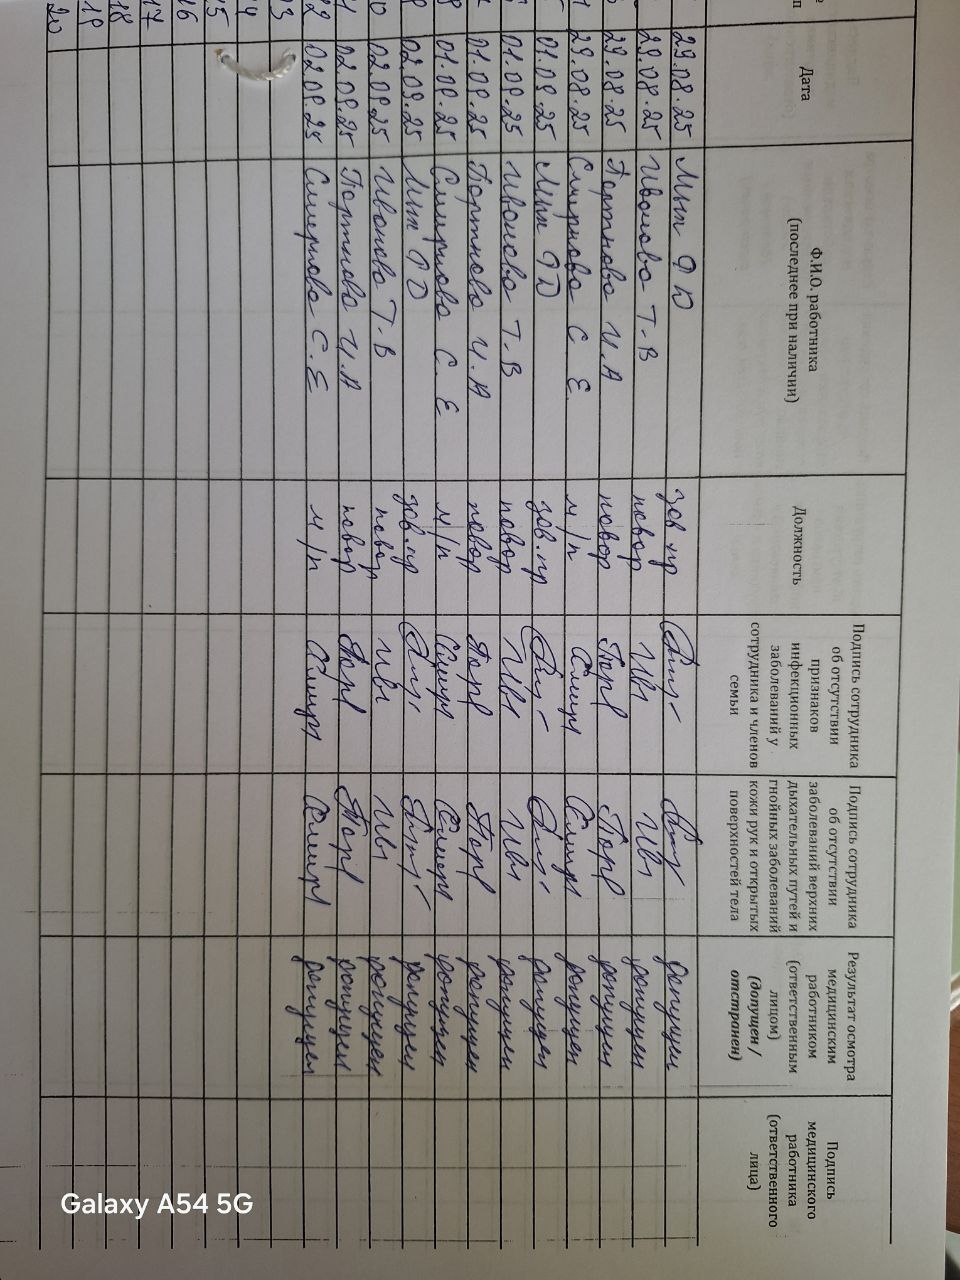 Дата
Ф.И.О. работника
(последнее при наличии)
Должность
Подпись сотрудника
об отсутствии
признаков
инфекционных
заболеваний у
сотрудника и членов
семьи
Подпись сотрудника
об отсутствии
заболеваний верхних
дыхательных путей и
гнойных заболеваний
кожи рук и открытых
поверхностей тела
Результат осмотра
медицинским
работником
(ответственным
лицом)
(допущен /
отстранен)
Подпись
медицинского
работника
(ответственного
лица)
29.08.25 зав пр допущен
29.08.25 Иванова Т.В повар Ив допущен
29.08.25 Портнова И.А повар Пор допущен
29.08.25 Смирнова С Е. м/п Смир допущен
01.09.25 зав.пр допущен
01.09.25 Иванова Т.В повар Ив допущен
01.09.25 Портнова И.А повар Пор допущен
01.09.25 Смирнова С Е м/п Смир допущен
02.09.25 зав.пр допущен
02.09.25 Иванова Т.В повар Ив допущен
02.09.25 Портнова И.А повар Пор допущен
02.09.25 Смирнова С.Е м/п Смир допущен
16
17
18
19
20
Galaxy A54 5G